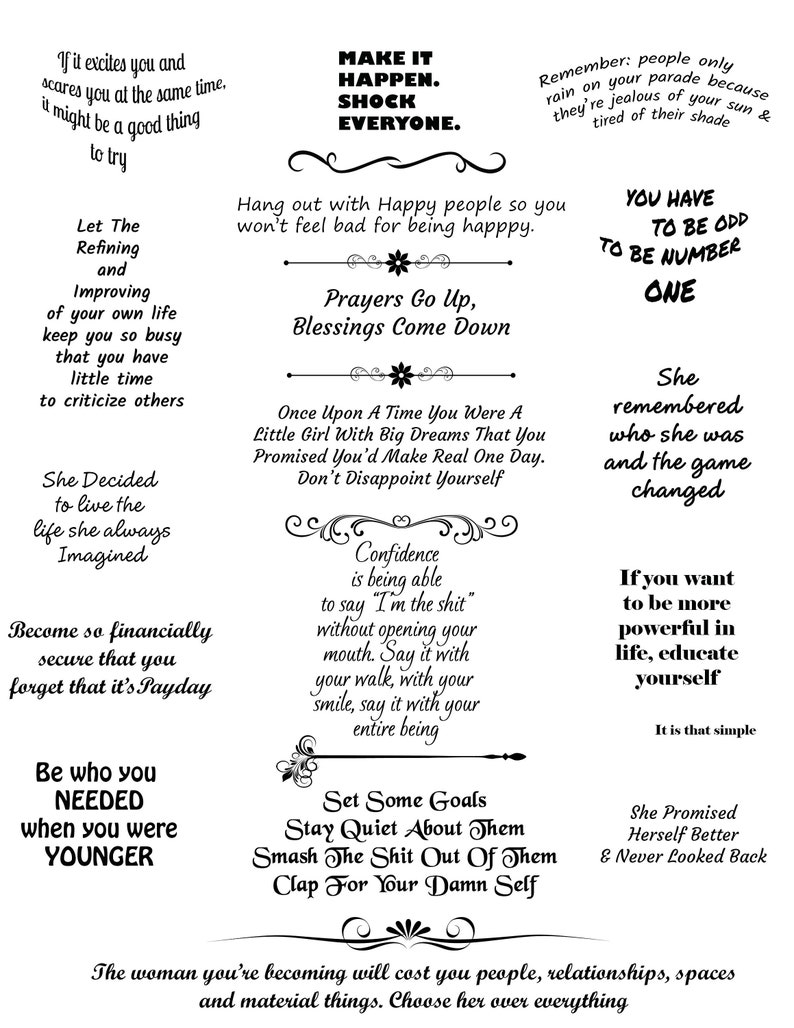 If it excites you and
scares you at the same time,
it might be a good thing
to try
MAKE IT
HAPPEN.
SHOCK
EVERYONE.
Remember: people only
rain on your parade because
they're jealous of your sun &
tired of their shade
Hang out with Happy people so you
won't feel bad for being happpy.
YOU HAVE
TO BE ODD
TO BE NUMBER
ONE
Let The
Refining
and
Improving
of your own life
keep you so busy
that you have
little time
to criticize others
Prayers Go Up,
Blessings Come Down
She
remembered
who she was
and the game
changed
Once Upon A Time You Were A
Little Girl With Big Dreams That You
Promised You'd Make Real One Day.
Don't Disappoint Yourself
She Decided
to live the
life she always
Imagined
Confidence
is being able
to say "I'm the shit"
without opening your
mouth. Say it with
your walk, with your
smile, say it with your
entire being
If you want
to be more
powerful in
life, educate
yourself
It is that simple
Become so financially
secure that you
forget that it'sPayday
Be who you
NEEDED
when you were
YOUNGER
Set Some Goals
Stay Quiet About Them
Smash The Shit Out Of Them
Clap For Your Damn Self
She Promised
Herself Better
& Never Looked Back
The woman you're becoming will cost you people, relationships, spaces
and material things. Choose her over everything